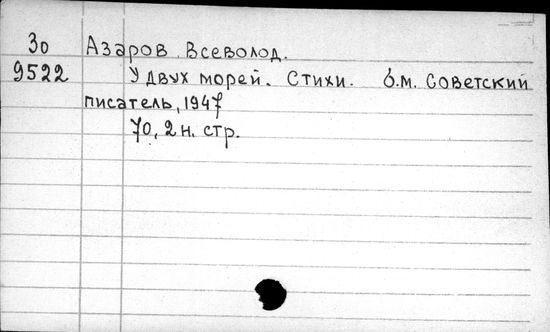 30 Азаров Всеволод.
9522 У двух морей. Стихи. б.м. Советский
писатель, 1947
70, 2 н. стр.